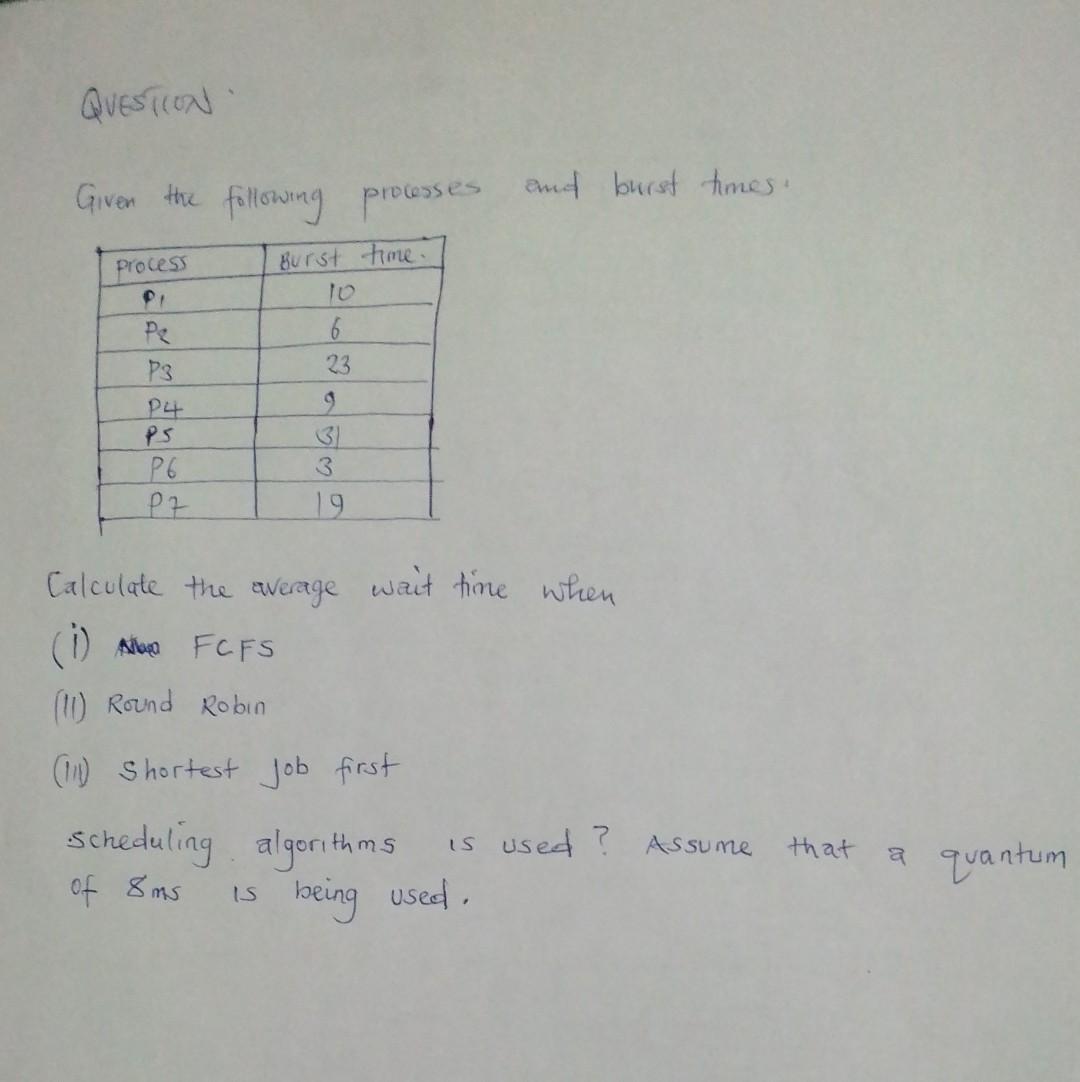 QUESTION.
Given the following processes and burst times.
process Burst time.
P1 10
P2 6
P3 23
P4 9
P5 31
P6 3
P7 19
Calculate the average wait time when
(i) FCFS
(II) Round Robin
(III) Shortest Job first
scheduling algorithms is used? Assume that a quantum
of 8ms is being used.